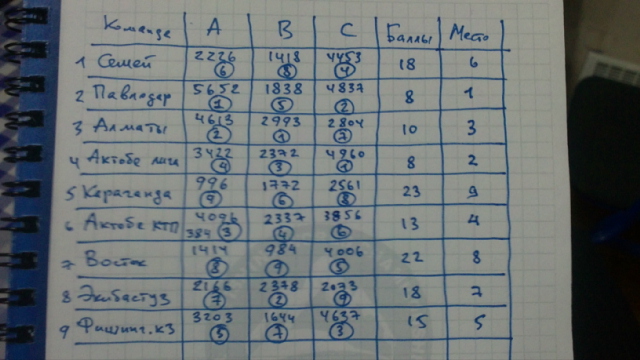 Команда A B C Баллы Место
1 Семей 2226 1418 4453 18 6
6 8 4
2 Павлодар 5652 1838 4837 8 1
1 5 2
3 Алматы 4613 2993 2804 10 3
2 1 7
4 Актобе лига 3422 2372 4960 8 2
4 3 1
5 Караганда 996 1772 2561 23 9
9 6 8
6 Актобе КТП 4096 2337 3856 13 4
384 3 4 6
7 Восток 1414 984 4006 22 8
8 9 5
8 Экибастуз 2166 2378 2073 18 7
7 2 9
9 Фишинг.кз 3203 1644 4637 15 5
5 7 3